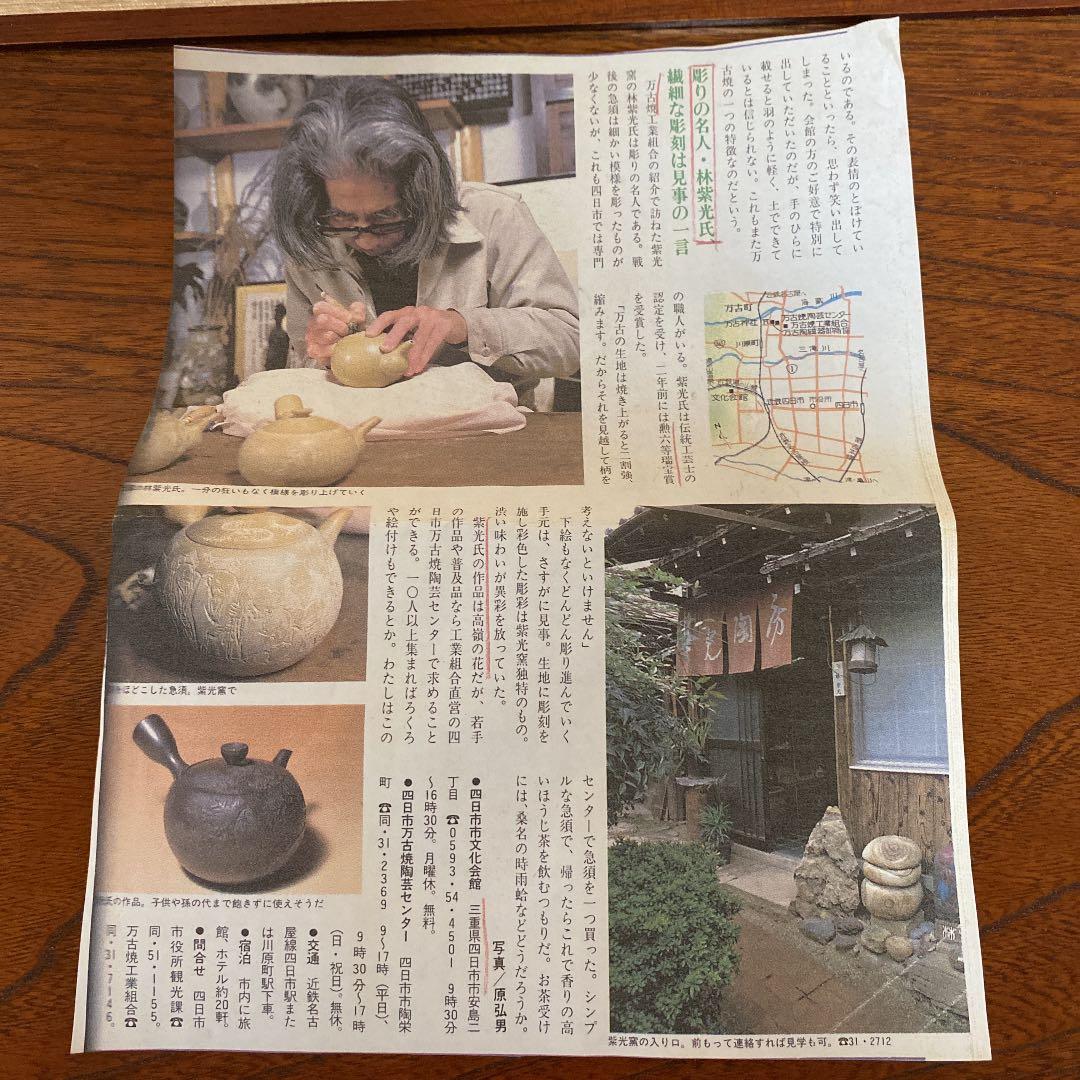 いるのである。その表情のとぼけてい
ることといったら、思わず笑い出して
しまった。会館の方のご好意で特別に
出していただいたのだが、手のひらに
載せると羽のように軽く、土でできて
いるとは信じられない。これもまた万
古焼の一つの特徴なのだという。
彫りの名人・林紫光氏
繊細な彫刻は見事の一言
万古焼工業組合の紹介で訪ねた紫光
窯の林紫光氏は彫りの名人である。戦
後の急須は細かい模様を彫ったものが
少なくないが、これも四日市では専門
の職人がいる。紫光氏は伝統工芸士の
認定を受け、二年前には勲六等瑞宝賞
を受賞した。
「万古の生地は焼き上がると二割強、
縮みます。だからそれを見越して柄を
万古町
万古神社
川原町
海蔵川
万古焼陶芸センター
万古焼工業組合
三滝川
1
文化会館
近鉄四日市
市役所
四日市
N
林紫光氏。一分の狂いもなく模様を彫り上げていく
考えないといけません」
下絵もなくどんどん彫り進んでいく
手元は、さすがに見事。生地に彫刻を
施し彩色した彫彩は紫光窯独特のもの。
渋い味わいが異彩を放っていた。
紫光氏の作品は高嶺の花だが、若手
の作品や普及品なら工業組合直営の四
日市万古焼陶芸センターで求めること
ができる。一〇人以上集まればろくろ
や絵付けもできるとか。わたしはこの
をほどこした急須。紫光窯で
氏の作品。子供や孫の代まで飽きずに使えそうだ
センターで急須を一つ買った。シンプ
ルな急須で、帰ったらこれで香りの高
いほうじ茶を飲むつもりだ。お茶受け
には、桑名の時雨蛤などどうだろうか。
写真／原弘男
●四日市市文化会館 三重県四日市市安島二
丁目 ☎0593・54・4501 9時30分
〜16時30分。月曜休。無料。
●四日市万古焼陶芸センター 四日市市陶栄
町 ☎同・31・2369 9〜17時（平日）、
9時30分〜17時
（日・祝日）。無休。
●交通 近鉄名古
屋線四日市駅また
は川原町駅下車。
●宿泊 市内に旅
館、ホテル約20軒。
●問合せ 四日市
市役所観光課☎
同・51・1155。
万古焼工業組合☎
同・31・7146。
光陶房
紫光窯の入り口。前もって連絡すれば見学も可。☎31・2712